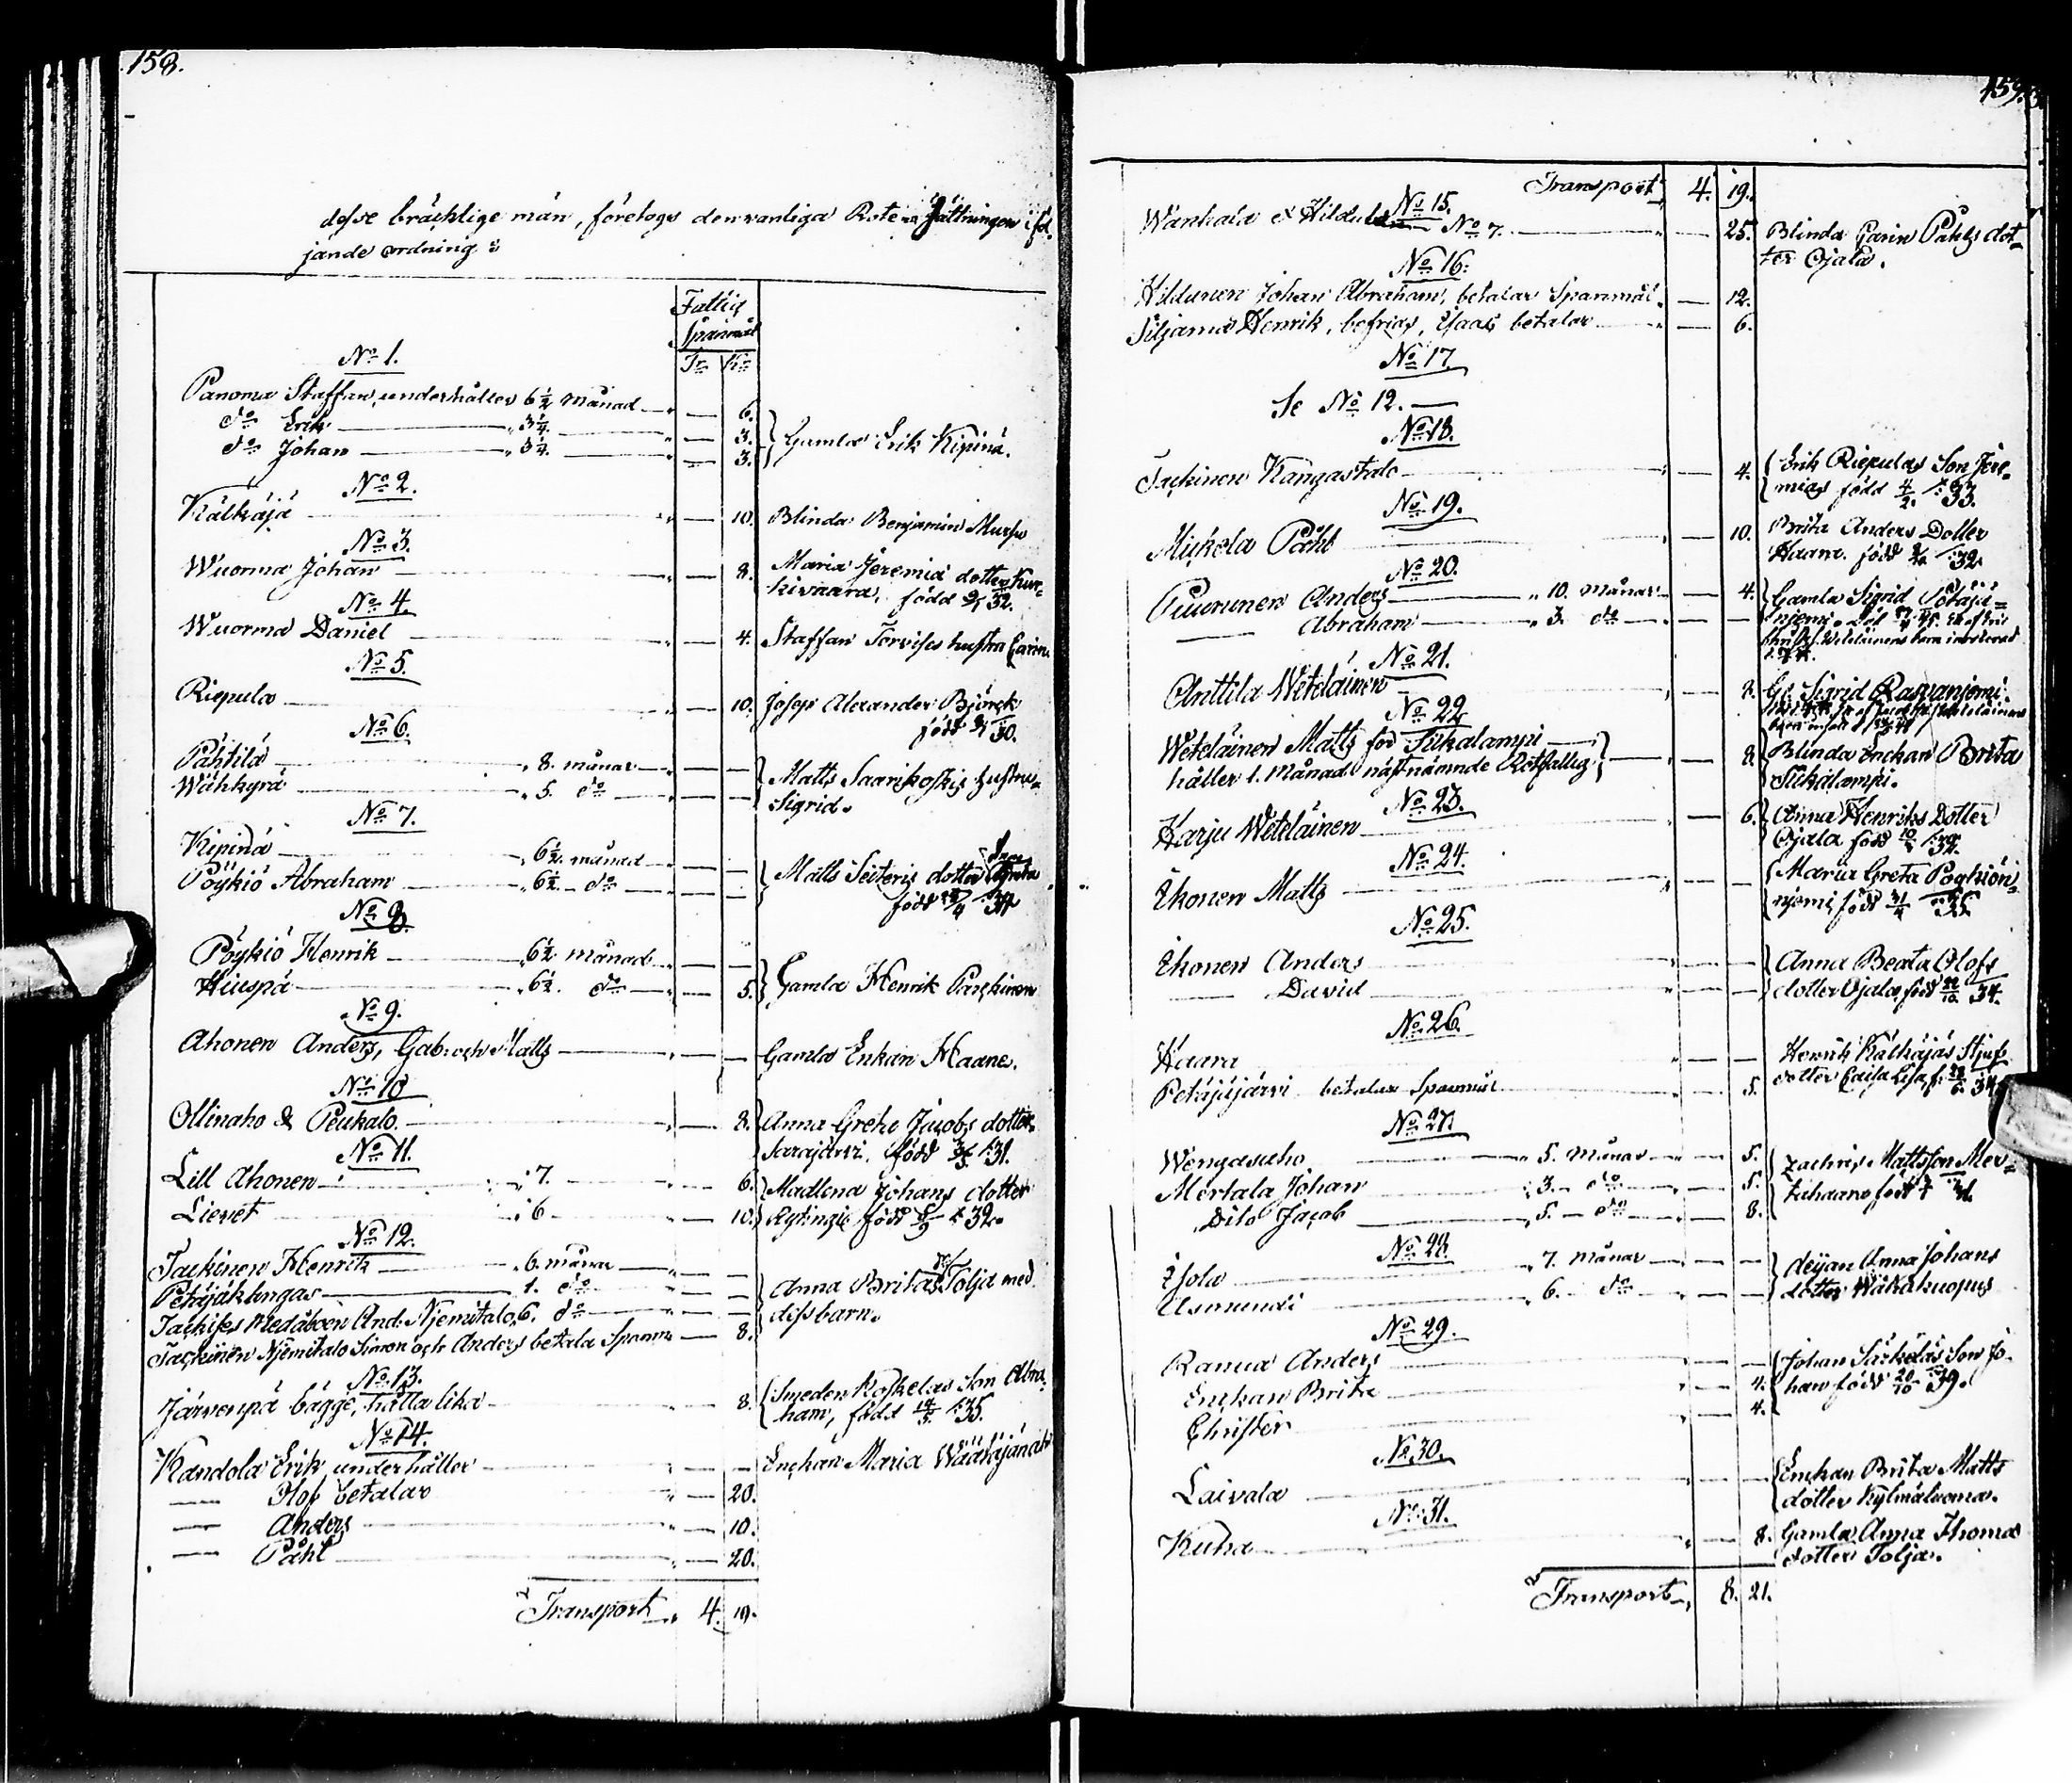 158.
desse bräcklige män, företogs den vanliga Rote Sättningen i föl-
jande ordning:
Fattig
Spanmål
Tr Kr
No 1.
Panoma Staffan, underhåller 6 1/2 månad 6.
do Erik 3 1/4. 3. Gamla Erik Kipinä.
do Johan 3 1/4. 3.
No 2.
Kälkäjä 10. Blinda Benjamin Mursu
No 3.
Wuorma Johan 8. Maria Jeremiä dotter Kur-
kivaara, född 32.
No 4.
Wuorma Daniel 4. Staffan Törvises hustru Carin
No 5.
Riepula 10. Josep Alexander Björck
född 30.
No 6.
Pähtilä 8. månar Matts Saarikoskis hustru
Wähkyrä 5. do Sigrid.
No 7.
Kipinä 6 1/2. månad Matts Seiteris dotter Greta
Pöykiö Abraham 6 1/2 do född 34
No 8.
Pöykiö Henrik 6 1/2 månad Gamla Henrik Parkinen
Hiuspä 6 1/2. do 5.
No 9.
Ahonen Anders, Gab: och Matts Gamla Enkan Haane.
No 10
Ollinaho & Peukalo. 8. Anna Greta Jacobs dotter
Sarajärvi. född 31.
No 11.
Lill Ahonen 7. 6. Madlena Johans dotter
Lievet 6 10. född 32.
No 12.
Tackinen Henrik 6. månar
Petäjäkangas 1. do Anna Britas Tolja med
And: Njemitalo, 6. do dess barn.
Tackinen Njemitalo Simon och Anders betala Spanm: 8.
No 13.
Järvenpä bägge, hälla lika 8. Smeden Koskelas Son Abra-
ham, född 14/3. 35.
No 14.
Kandola Erik underhåller Enckan Maria
Olof betalar 20.
Anders 10.
Påhl 20.
Transport 4. 19.
159.
Transport 4. 19.
No 15.
Wanhala & No 7. 25. Blinda Carin Påhls dot-
ter Ojala.
No 16.
Hildunen Johan Abraham, betalar Spanmål. 12.
Siljama Henrik, befrias, Isaac betalar 6.
No 17.
Se No 12.
No 18.
Tackinen Kangastalo 4. Erik Riepulas Son Jere-
mias född 4/2. 33.
No 19.
Mickola Påhl 10. Brita Anders Dotter
Haara. född 32.
No 20.
Puurunen Anders 10. månar 4. Gamla Sigrid
Abraham 3. do
No 21.
Anttila Wetelainen 8. Sigrid
No 22
Wetelainen Matts för Siikalampi
håller 1. månad näst nämnde Rotfattig 8. Blinda Enckan Brita
Siikalampi.
No 23.
Harju Wetelainen 6. Anna Henriks Dotter
Ojala född 34.
No 24.
Ekonen Matts Maria Greta
njemi, född 35.
No 25.
Ekonen Anders Anna Beata Olofs
David dotter Ojala, född 34.
No 26.
Haara Henrik Kälkäjäs Stjuf
Petäjäjärvi betalar Spanmål 5. dotter Caisa Lisa f: 34
No 27.
Wengasaho 5. månar 5. Zachris Mattsson Mer-
Mertala Johan 3. do 5.
Dito Jacob 5. do 8.
No 28.
Isola 7. månar Anna Johans
Asmundi 6. do dotter Wähäkuopus
No 29.
Ranua Anders Johan Särkelas Son Jo-
Enckan Brita 4. han född 20/10 39.
Christer 4.
No 30.
Laivala Enckan Brita Matts
dotter Kylmäluoma.
No 31.
Kuha 8. Gamla Anna Thomas
dotter Tolja.
Transport 8. 21.